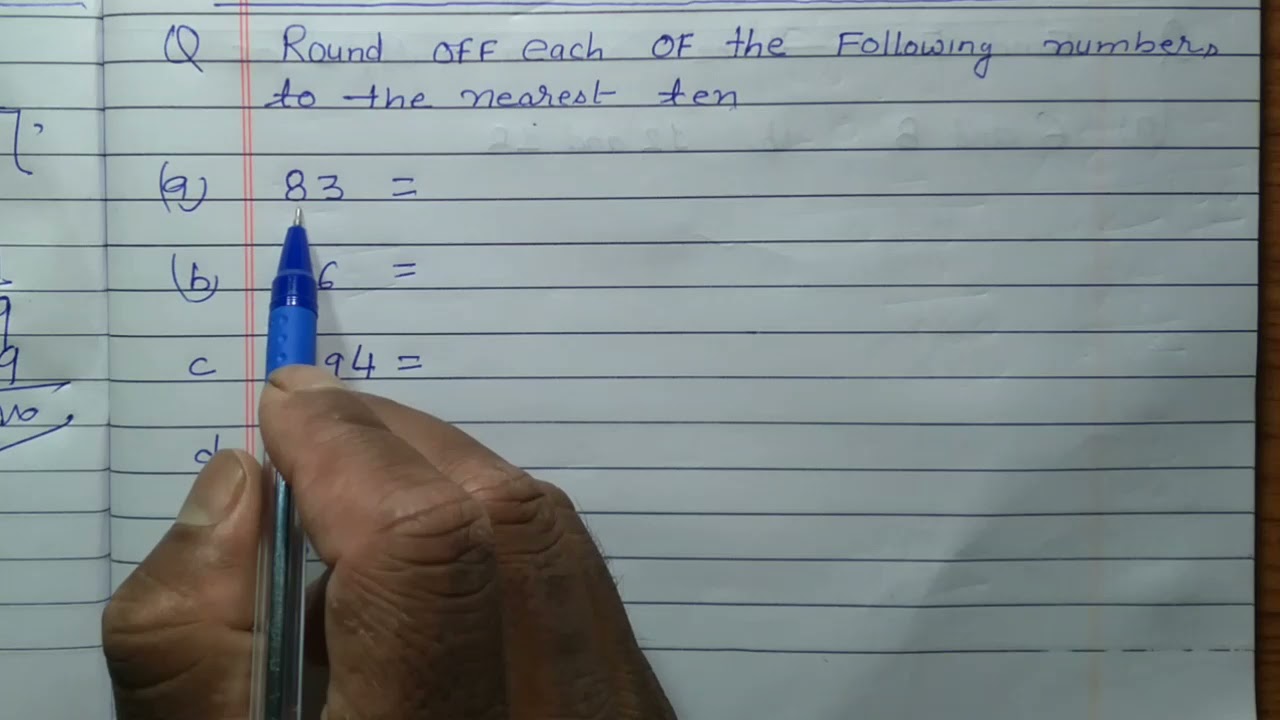 Q Round OFF each OF the Following numbers
to the nearest ten
(a) 83 =
(b) 6 =
c 94 =
d